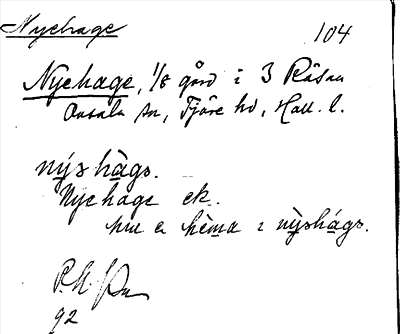 Nychage
104
Nychage, 1/8 gård i 3 Råsan
Onsala sn, Fjäre hd, Hall. l.
nýshàgs.
Nychage ek.
hu e hèma i nỳshágs.
92